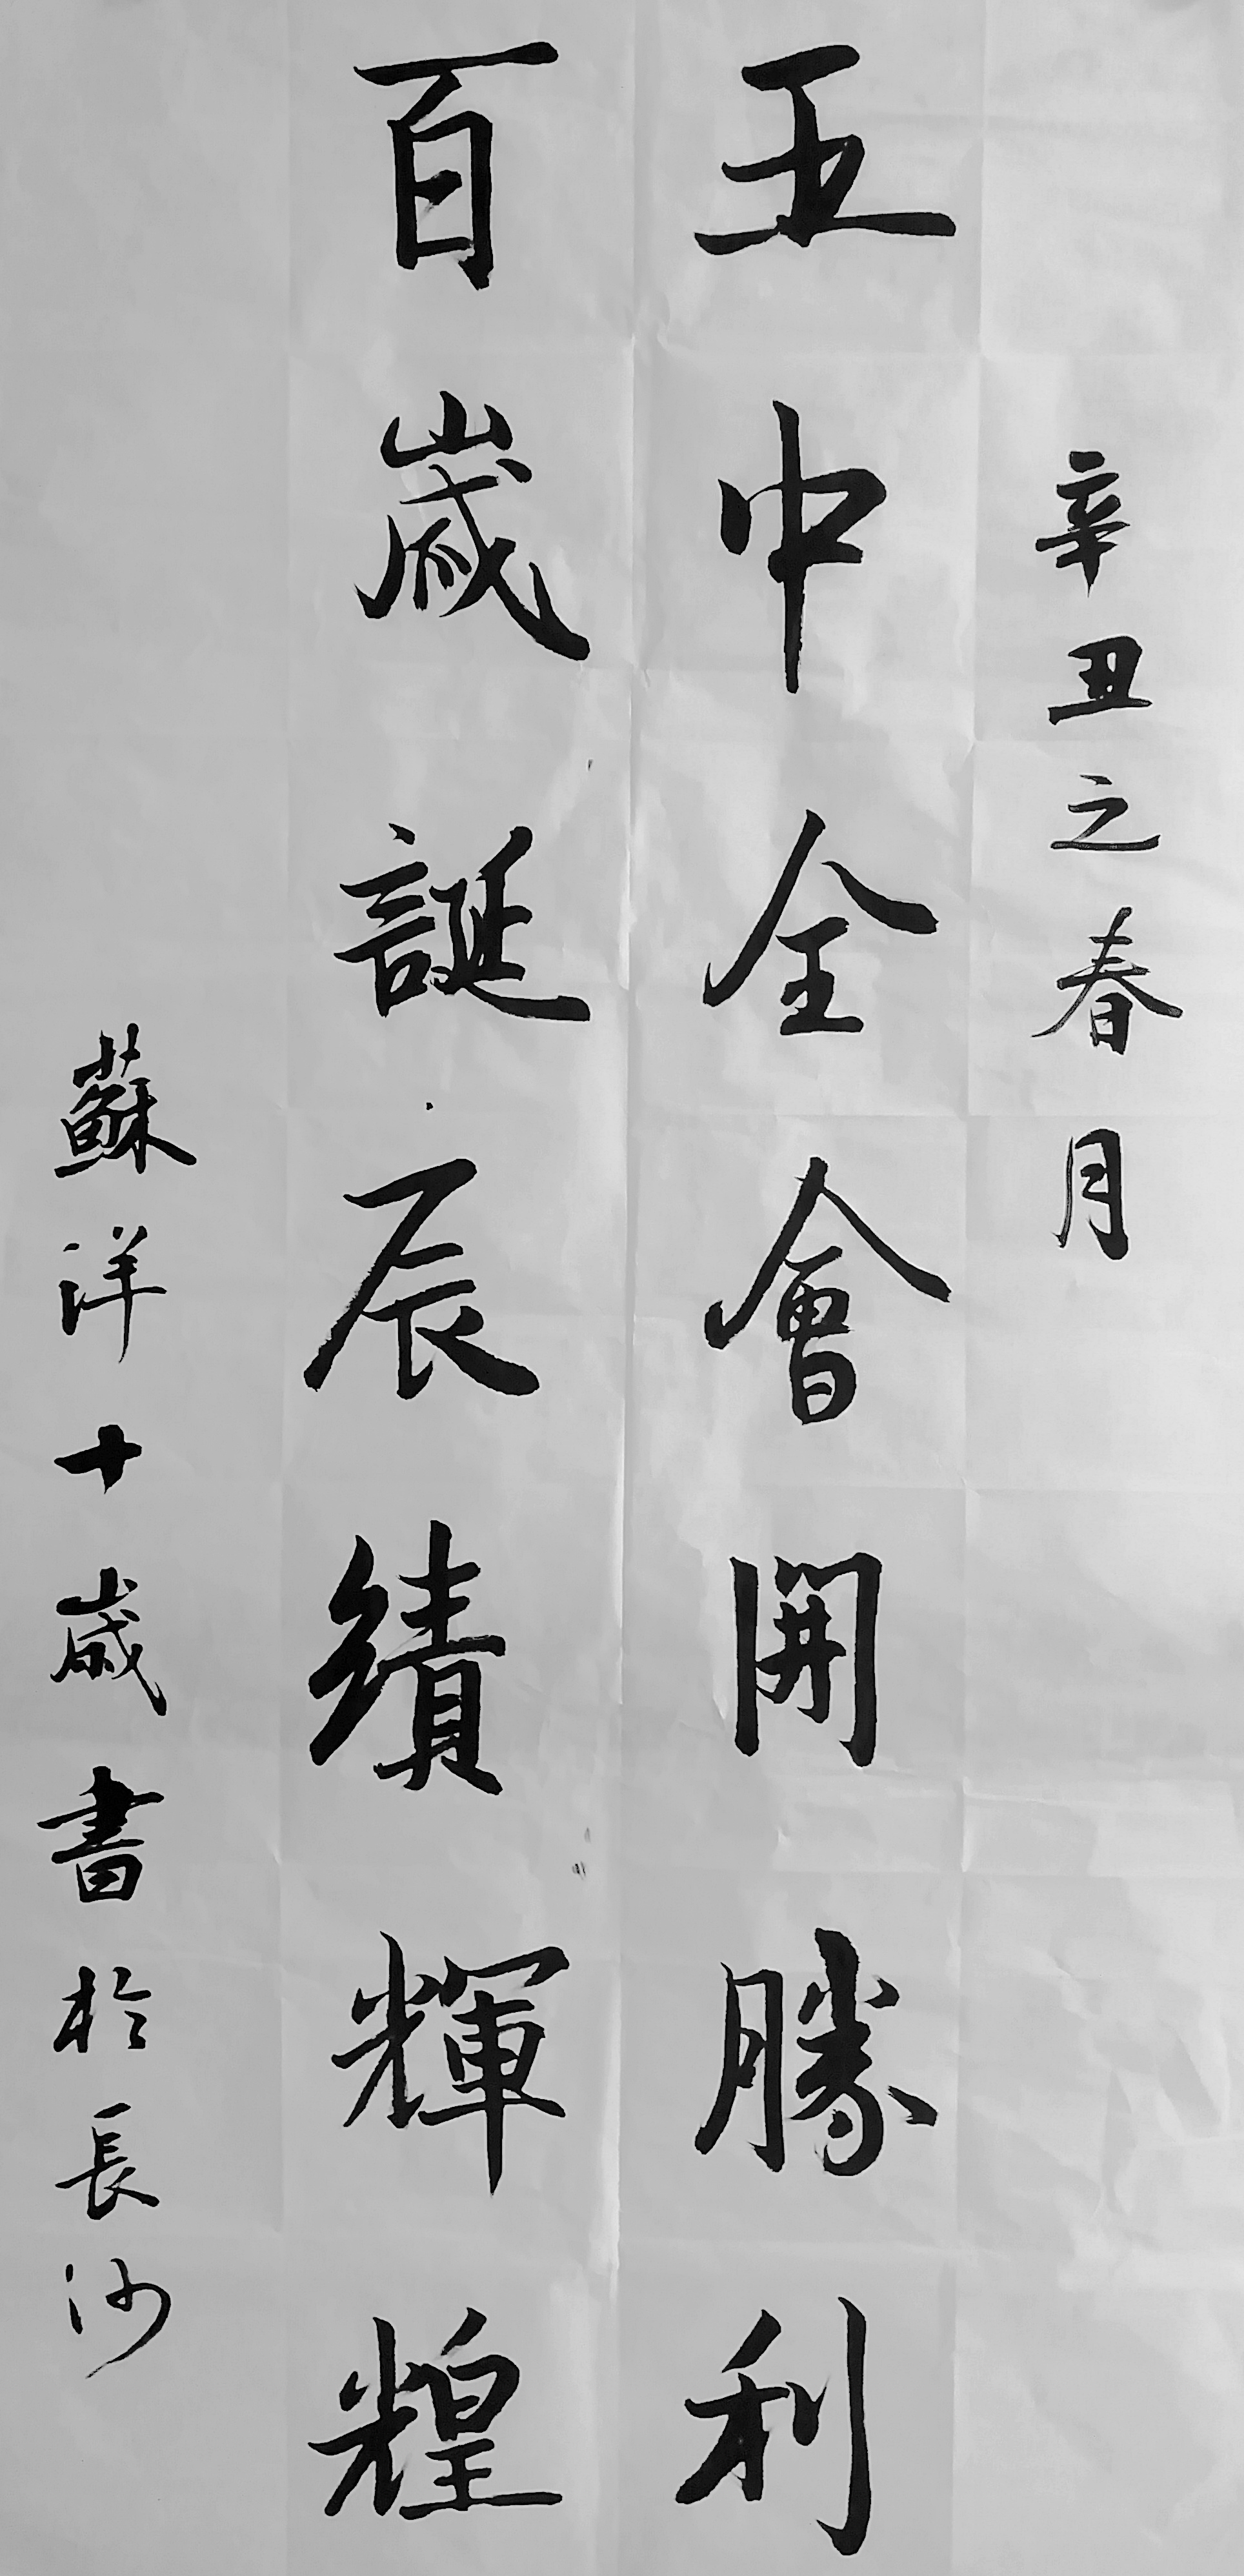 辛丑之春月
五中全會開勝利
百歲誕辰績輝煌
蘇洋十歲書於長沙